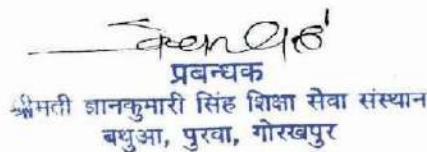 प्रबन्धक
श्रीमती ज्ञानकुमारी सिंह शिक्षा सेवा संस्थान
बथुआ, पुरवा, गोरखपुर